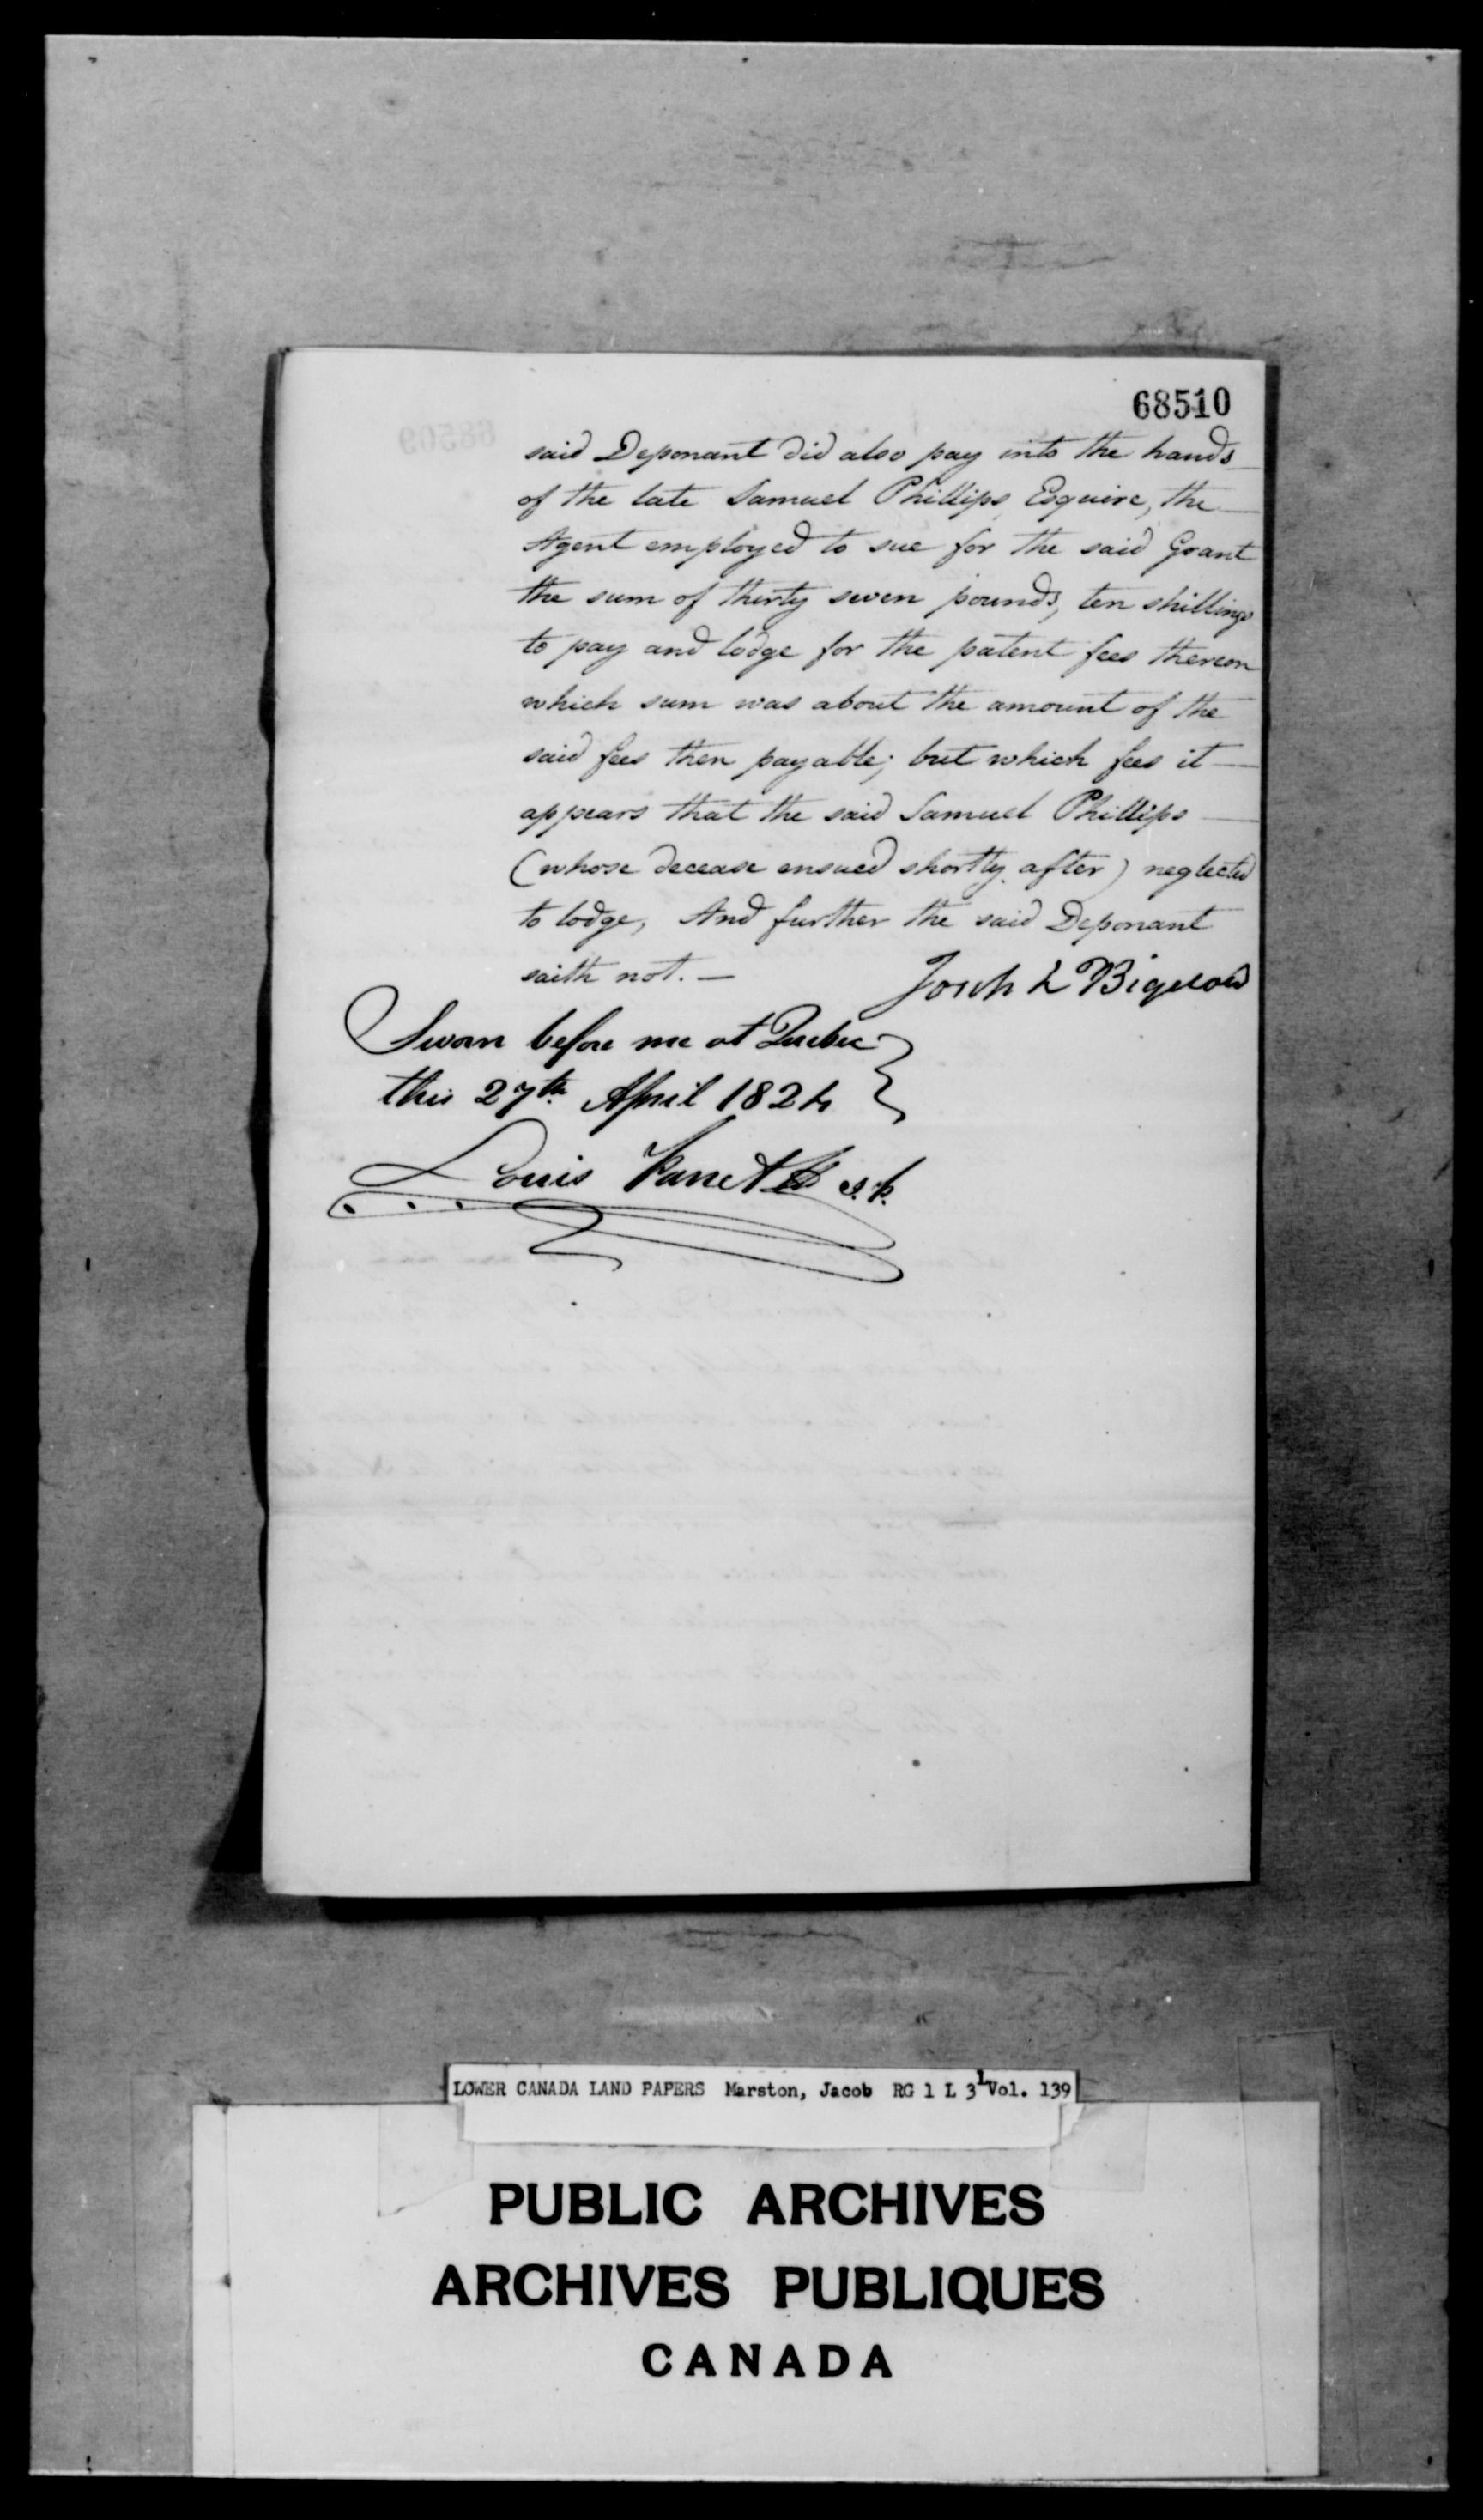 68510
said Deponant did also pay into the hands
of the late Samuel Phillips Esquire, the
Agent employed to sue for the said Grant
the sum of thirty seven pounds, ten shillings
to pay and lodge for the patent fees thereon
which sum was about the amount of the
said fees then payable; but which fees it
appears that the said Samuel Phillips
(whose decease ensued shortly after) neglected
to lodge, And further the said Deponant
saith not. —
L Bigelow
Sworn before me at Quebec
this 27th April 1824
Louis
LOWER CANADA LAND PAPERS Marston, Jacob RG 1 L 3L Vol. 139
PUBLIC ARCHIVES
ARCHIVES PUBLIQUES
CANADA